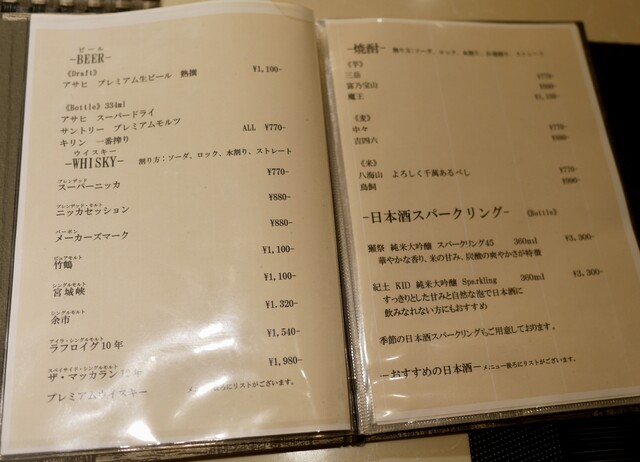 ビール
-BEER-
《Draft》
アサヒ プレミアム生ビール 熟撰 ¥1,100-
《Bottle》334ml
アサヒ スーパードライ
サントリー プレミアムモルツ ALL ¥770-
キリン 一番搾り
ウイスキー
-WHISKY- 割り方;ソーダ、ロック、水割り、ストレート
ブレンデッド
スーパーニッカ ¥770-
ブレンデッド・モルト
ニッカセッション ¥880-
バーボン
メーカーズマーク ¥880-
ピュアモルト
竹鶴 ¥1,100-
シングルモルト
宮城峡 ¥1,100-
シングルモルト
余市 ¥1.320-
アイラ・シングルモルト
ラフロイグ10年 ¥1,540-
スペイサイド・シングルモルト
ザ・マッカラン 年 ¥1,980-
プレミアムウイスキー メニュー後ろにリストがございます。
-焼酎- 割り方:ソーダ、ロック、水割り、お湯割り、ストレート
《芋》
三岳 ¥770-
富乃宝山 ¥880-
魔王 ¥1,100-
《麦》
中々 ¥770-
吉四六 ¥880-
《米》
八海山 よろしく千萬あるべし ¥770-
鳥飼 ¥990-
-日本酒スパークリング- 《Bottle》
獺祭 純米大吟醸 スパークリング45 360ml ¥3,300-
華やかな香り、米の甘み、炭酸の爽やかさが特徴
紀土 KID 純米大吟醸 Sparkling 360ml ¥3,300-
すっきりとした甘みと自然な泡で日本酒に
飲みなれない方にもおすすめ
季節の日本酒スパークリングもご用意しております。
-おすすめの日本酒- メニュー後ろにリストがございます。